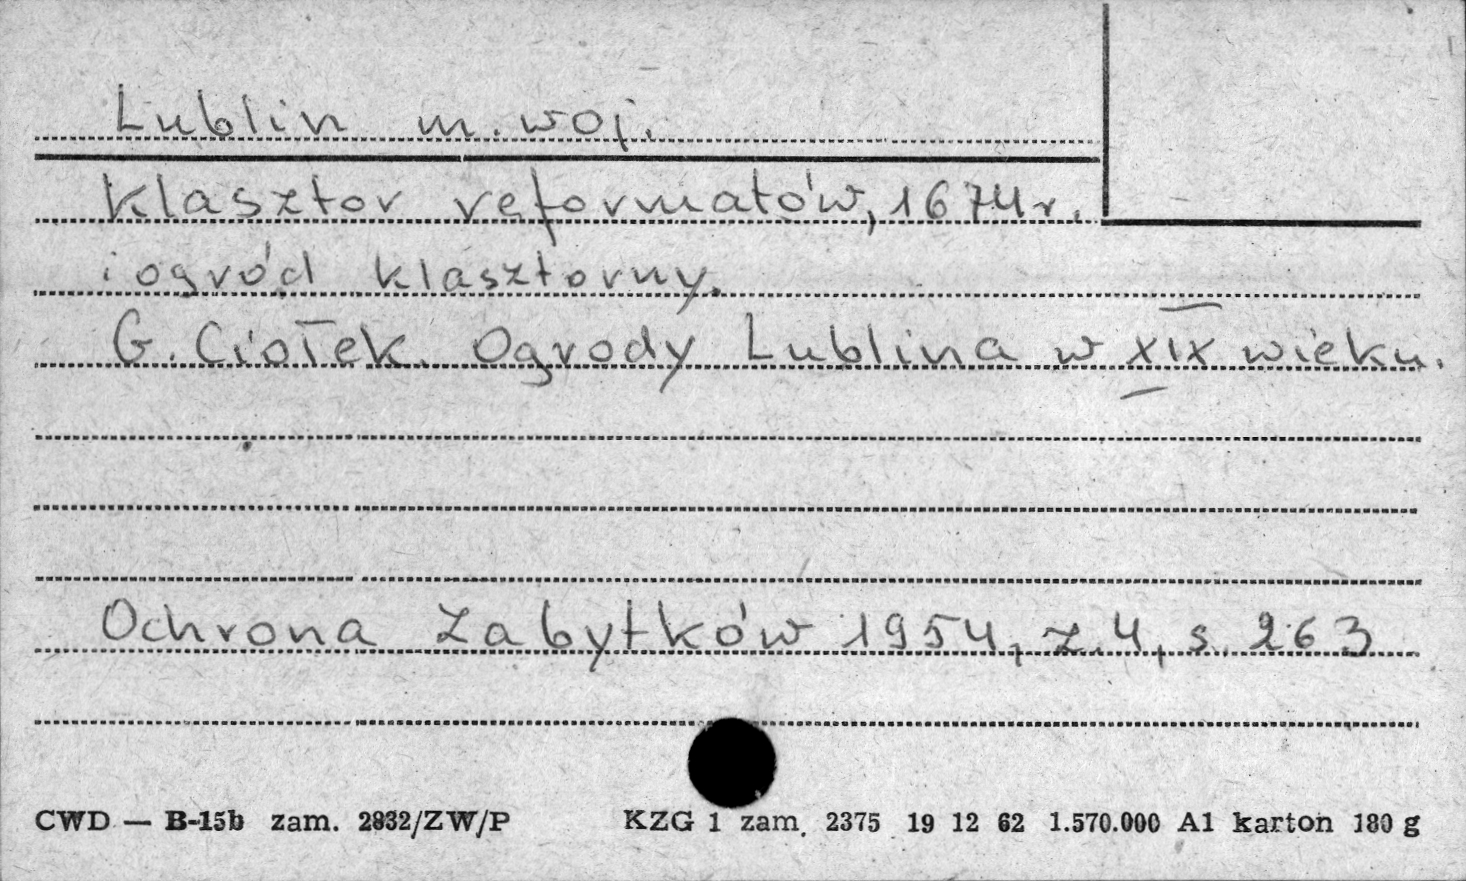 Lublin m. woj.
Klasztor reformatów, 1674 r.
i ogród klasztorny.
G. Ciołek. Ogrody Lublina w XIX wieku.
Ochrona Zabytków 1954, z. 4, s. 263
CWD — B-15b zam. 2832/ZW/P KZG 1 zam. 2375 19 12 62 1.570.000 A1 karton 180 g